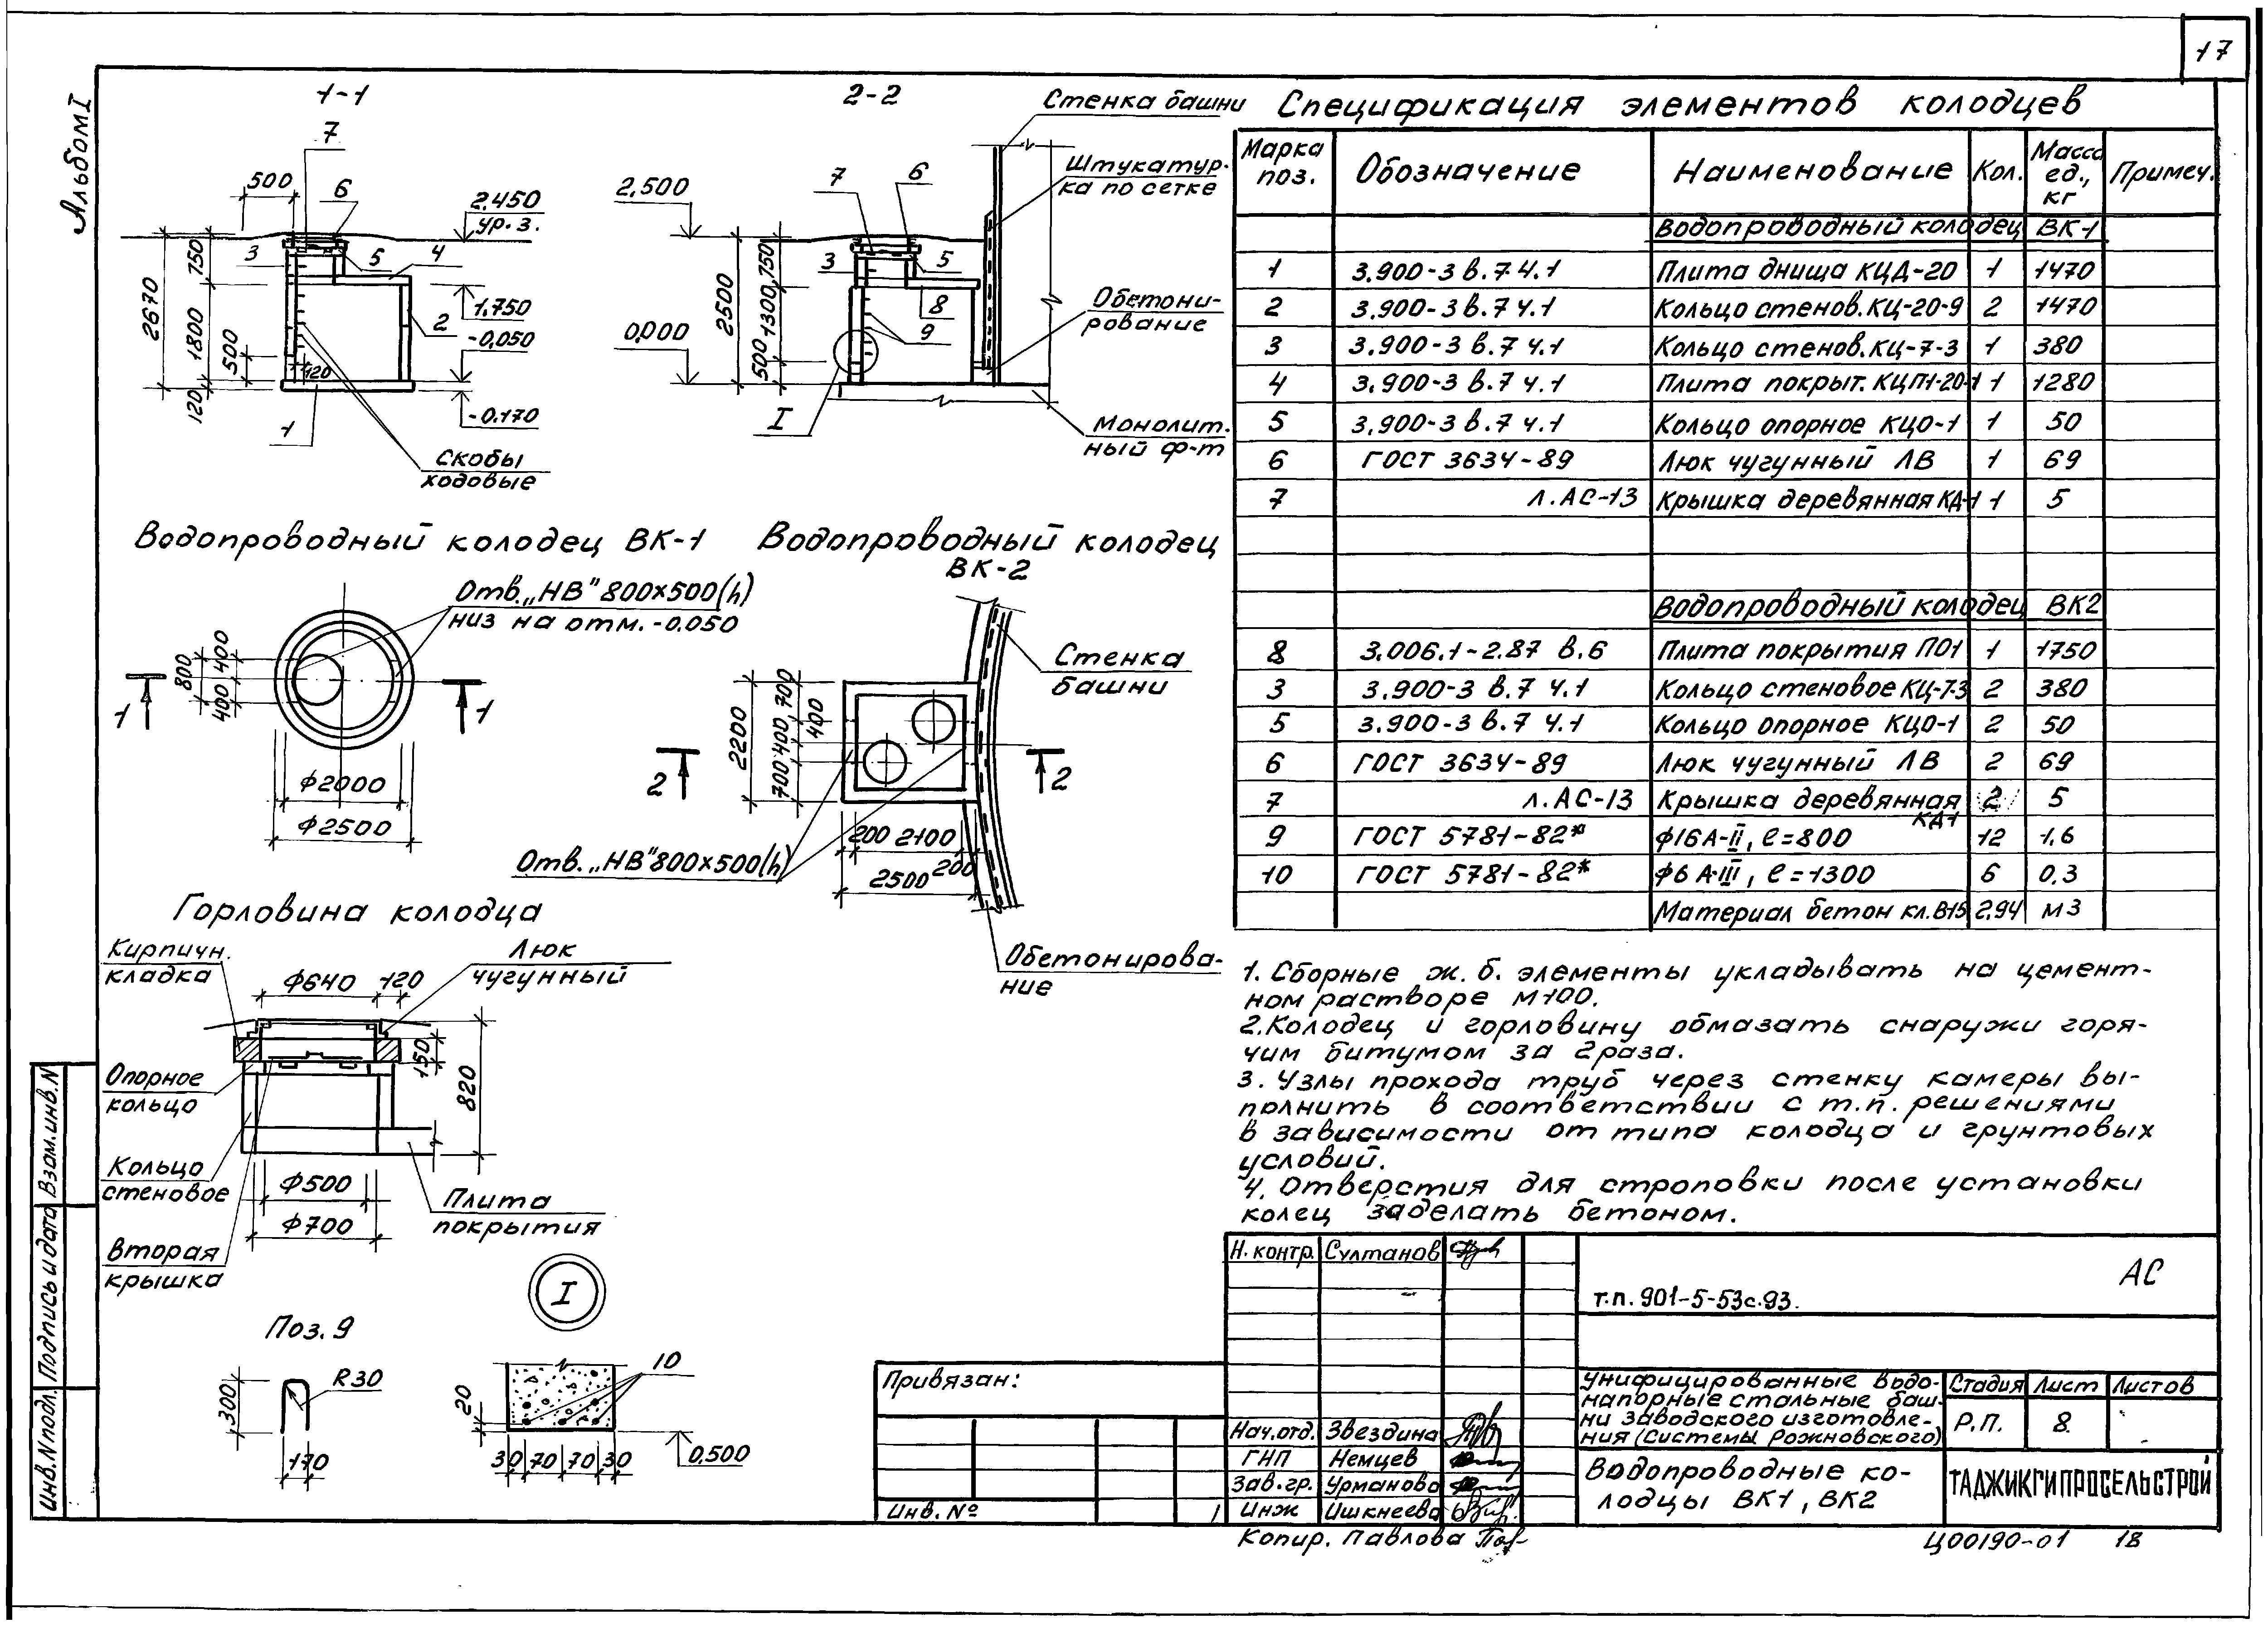 17
Альбом I
1-1
7
500
6
2.450
ур.з.
3
5
4
750
2670
1800
500
120
120
1.750
2
-0,050
-0.170
1
Скобы
ходовые
2-2
Стенка башни
Штукатур-
ка по сетке
7
6
2,500
3
5
750
2500
1300
500
8
9
0,000
Обетони-
рование
I
Монолит.
ный ф-т
Водопроводный колодец ВК-1
Отв. „НВ" 800×500(h)
низ на отм. -0.050
800
400
400
1
1
ф2000
ф2500
Водопроводный колодец
ВК-2
Стенка
башни
2200
700
400
400
700
2
2
200 2100
200
2500
Отв. „НВ" 800×500(h)
Обетонирова-
ние
Горловина колодца
Кирпичн.
кладка
ф640
120
Люк
чугунный
150
820
Опорное
кольцо
Кольцо
стеновое
ф500
ф700
Плита
покрытия
Вторая
крышка
Поз. 9
R30
300
110
I
10
20
30 70 70 30
0,500
Спецификация элементов колодцев
Марка поз. Обозначение Наименование Кол. Масса ед., кг Примеч.
Водопроводный колодец ВК-1
1 3.900-3 в.7 ч.1 Плита днища КЦД-20 1 1470
2 3.900-3 в.7 ч.1 Кольцо стенов. КЦ-20-9 2 1470
3 3.900-3 в.7 ч.1 Кольцо стенов. КЦ-7-3 1 380
4 3.900-3 в.7 ч.1 Плита покрыт. КЦП1-20-1 1 1280
5 3.900-3 в.7 ч.1 Кольцо опорное КЦО-1 1 50
6 ГОСТ 3634-89 Люк чугунный ЛВ 1 69
7 л. АС-13 Крышка деревянная КД-1 1 5
Водопроводный колодец ВК2
8 3.006.1-2.87 в.6 Плита покрытия ПО1 1 1750
3 3.900-3 в.7 ч.1 Кольцо стеновое КЦ-7-3 2 380
5 3.900-3 в.7 ч.1 Кольцо опорное КЦО-1 2 50
6 ГОСТ 3634-89 Люк чугунный ЛВ 2 69
7 л. АС-13 Крышка деревянная КД-1 2 5
9 ГОСТ 5781-82* ф16А-II, ℓ=800 12 1,6
10 ГОСТ 5781-82* ф6 А-III, ℓ=1300 6 0,3
Материал бетон кл.В-15 2.94 м3
1. Сборные ж.б. элементы укладывать на цемент-
ном растворе М100.
2. Колодец и горловину обмазать снаружи горя-
чим битумом за 2 раза.
3. Узлы прохода труб через стенку камеры вы-
полнить в соответствии с т.п. решениями
в зависимости от типа колодца и грунтовых
условий.
4. Отверстия для строповки после установки
колец заделать бетоном.
Н. контр. Султанов
АС
т.п. 901-5-53с.93.
Привязан:
Инв. №
1
Нач.отд. Звездина
ГНП Немцев
Зав.гр. Урманова
Инж Ишкнеева
Унифицированные водо-
напорные стальные баш-
ни заводского изготовле-
ния (системы Рожновского)
Стадия Лист Листов
Р.П. 8
Водопроводные ко-
лодцы ВК1, ВК2
ТАДЖИКГИПРОСЕЛЬСТРОЙ
Копир. Павлова
Ц00190-01 18
Инв. N подл. Подпись и дата Взам.инв. N